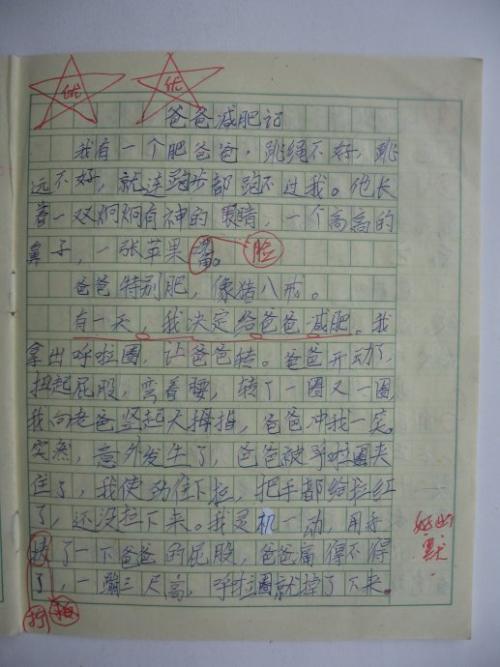 优 优
爸爸减肥记
我有一个肥爸爸，跳绳不好，跳
远不好，就连跑步都跑不过我。他长
着一双炯炯有神的眼睛，一个高高的
鼻子，一张苹果 。 脸
爸爸特别肥，像猪八戒。
有一天，我决定给爸爸减肥。我
拿出呼拉圈，让爸爸转。爸爸开动了，
扭起屁股，弯着腰，转了一圈又一圈
我向老爸竖起大拇指，爸爸冲我一笑。
突然，意外发生了，爸爸被呼啦圈夹
住了，我使劲住下拉，把手都给拉红
了，还没拉下来。我灵机一动，用手
了一下爸爸的屁股，爸爸痛得不得
了，一蹦三尺高，呼拉圈就掉了下来。
好幽
默
拍